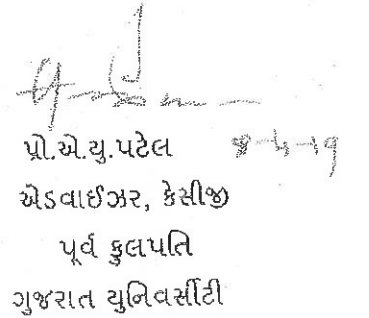 પ્રો.એ.યુ.પટેલ
એડવાઈઝર, કેસીજી
પૂર્વ કુલપતિ
ગુજરાત યુનિવર્સીટી